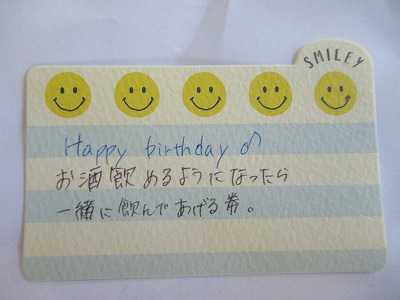 SMILEY
Happy birthday♂
お酒飲めるようになったら
一緒に飲んであげる券。